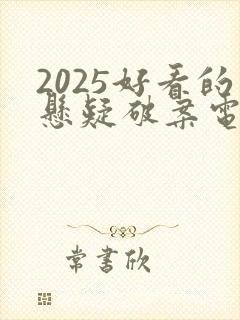 2025好看的
悬疑破案电
常书欣